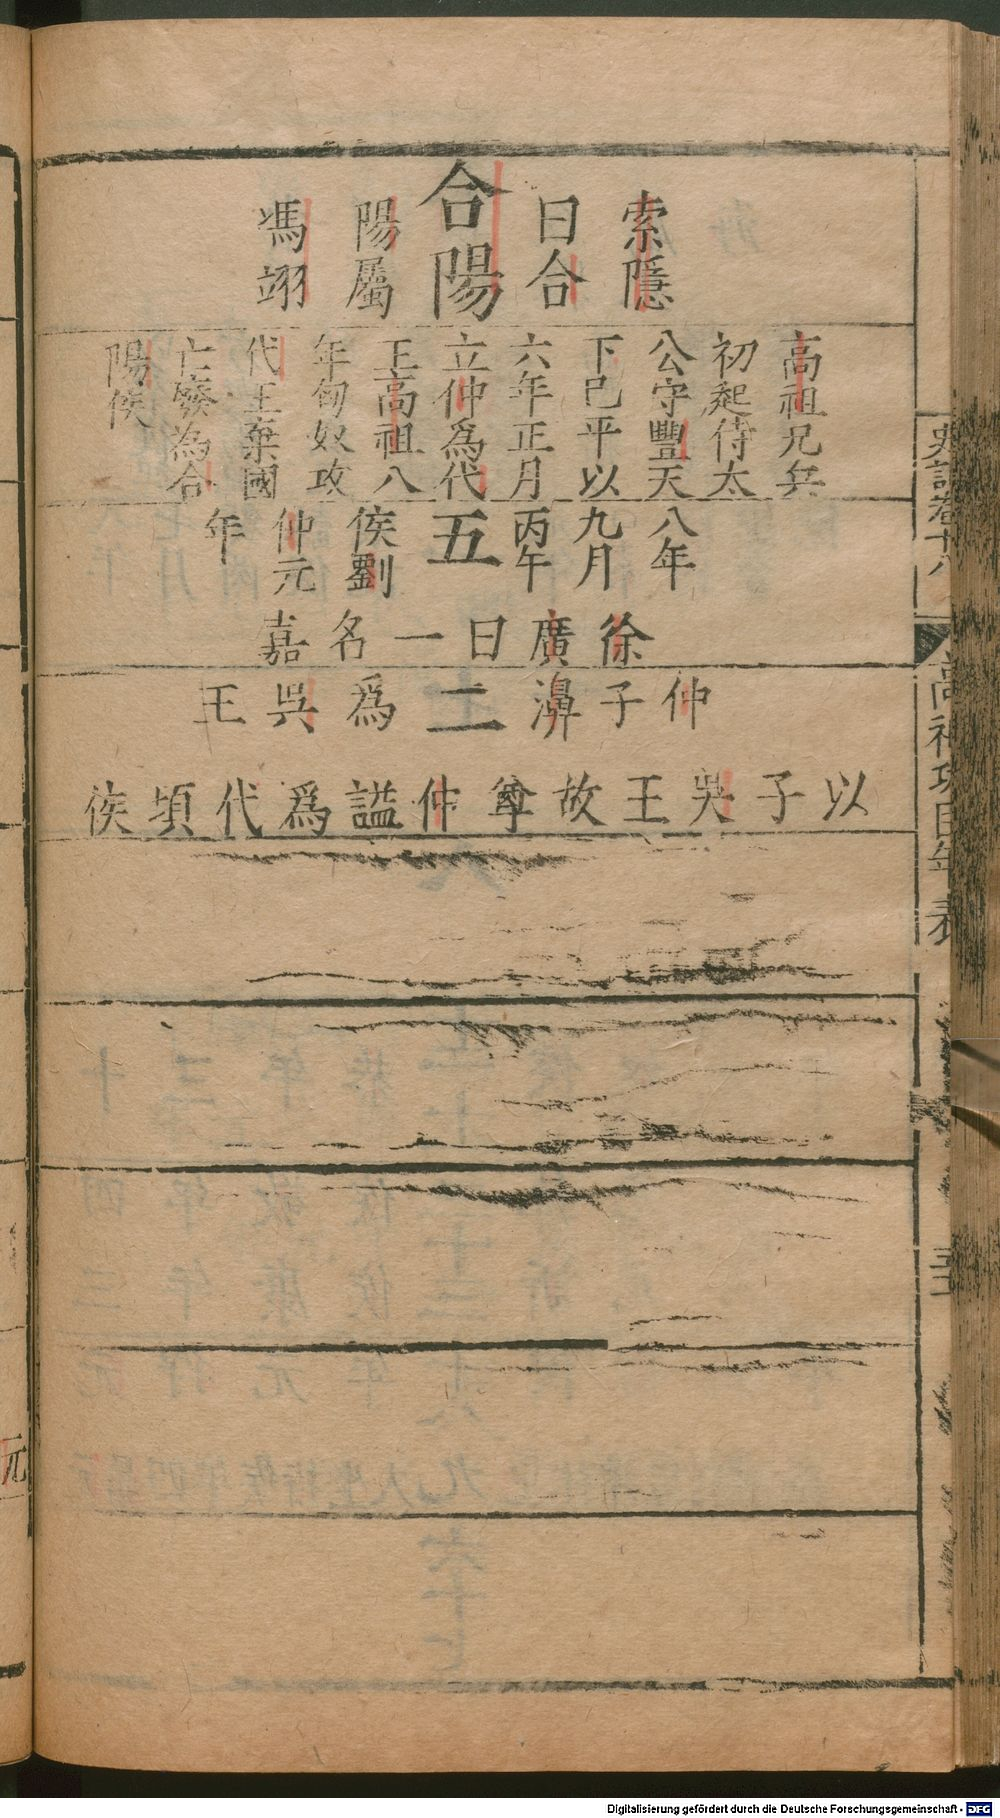 索隱
曰合
合陽
陽屬
馮翊
高祖兄兵
初起侍太
公守豐天
下已平以
六年正月
立仲爲代
王高祖八
年匈奴攻
代王棄國
亡廢為合
陽侯
八年
九月
丙午
五
侯劉
仲元
年
徐廣曰一名嘉
仲子濞二爲吳王
以子吳王故尊仲謚爲代頃侯
史記卷十八
高祖功臣年表
元
Digitalisierung gefördert durch die Deutsche Forschungsgemeinschaft - DFG